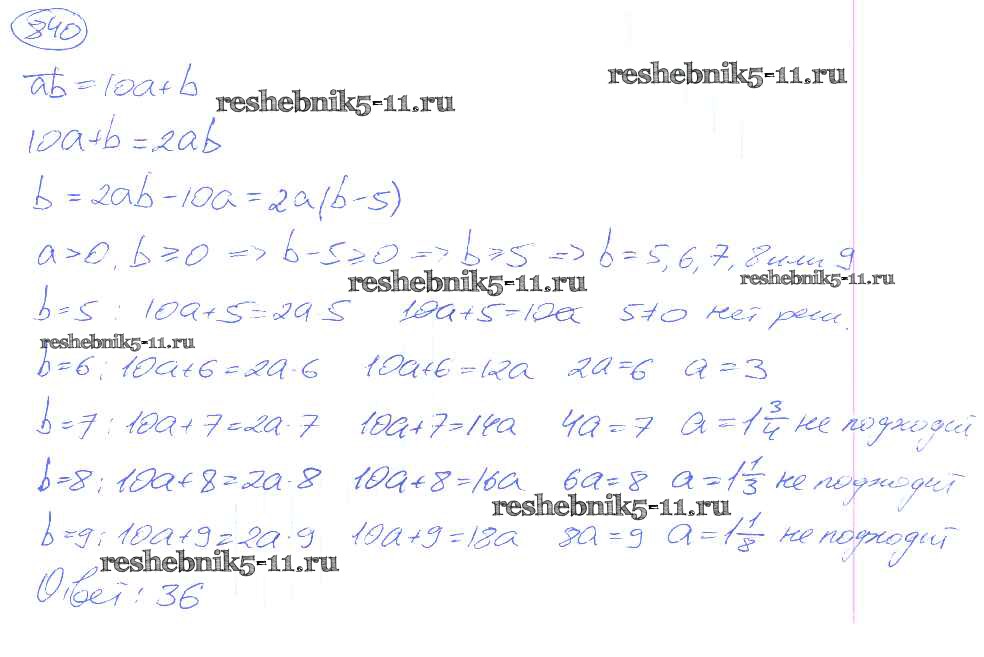 840
reshebnik5-11.ru
ab = 10a+b
reshebnik5-11.ru
10a+b = 2ab
b = 2ab-10a = 2a(b-5)
a>0, b≥0 => b-5≥0 => b≥5 => b=5,6,7,8 или 9
reshebnik5-11.ru
reshebnik5-11.ru
b=5: 10a+5=2a·5 10a+5=10a 5≠0 нет реш.
reshebnik5-11.ru
b=6: 10a+6=2a·6 10a+6=12a 2a=6 a=3
b=7: 10a+7=2a·7 10a+7=14a 4a=7 a=1 3/4 не подходит
b=8: 10a+8=2a·8 10a+8=16a 6a=8 a=1 1/3 не подходит
reshebnik5-11.ru
b=9: 10a+9=2a·9 10a+9=18a 8a=9 a=1 1/8 не подходит
reshebnik5-11.ru
Ответ: 36